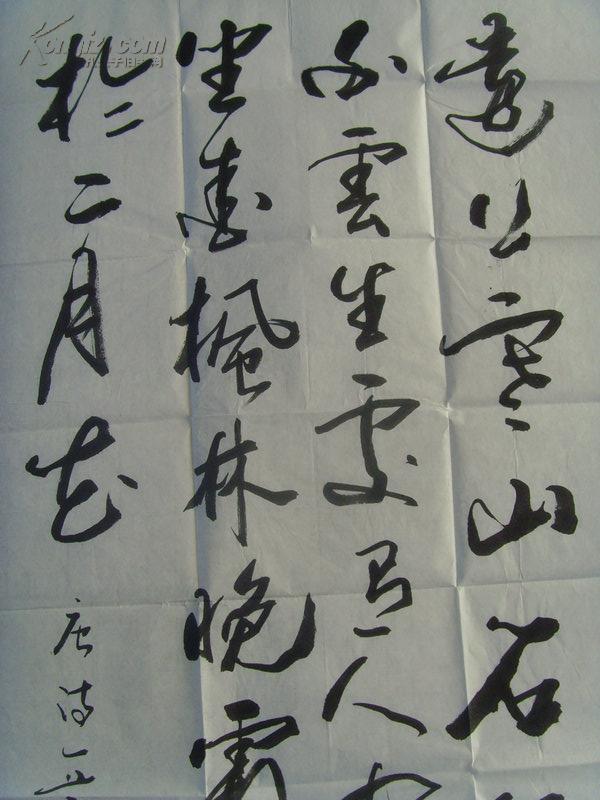 遠上寒山石
白雲生處有人
坐愛楓林晚霜
於二月花
唐诗一首
Kongfz.com
孔夫子旧书网